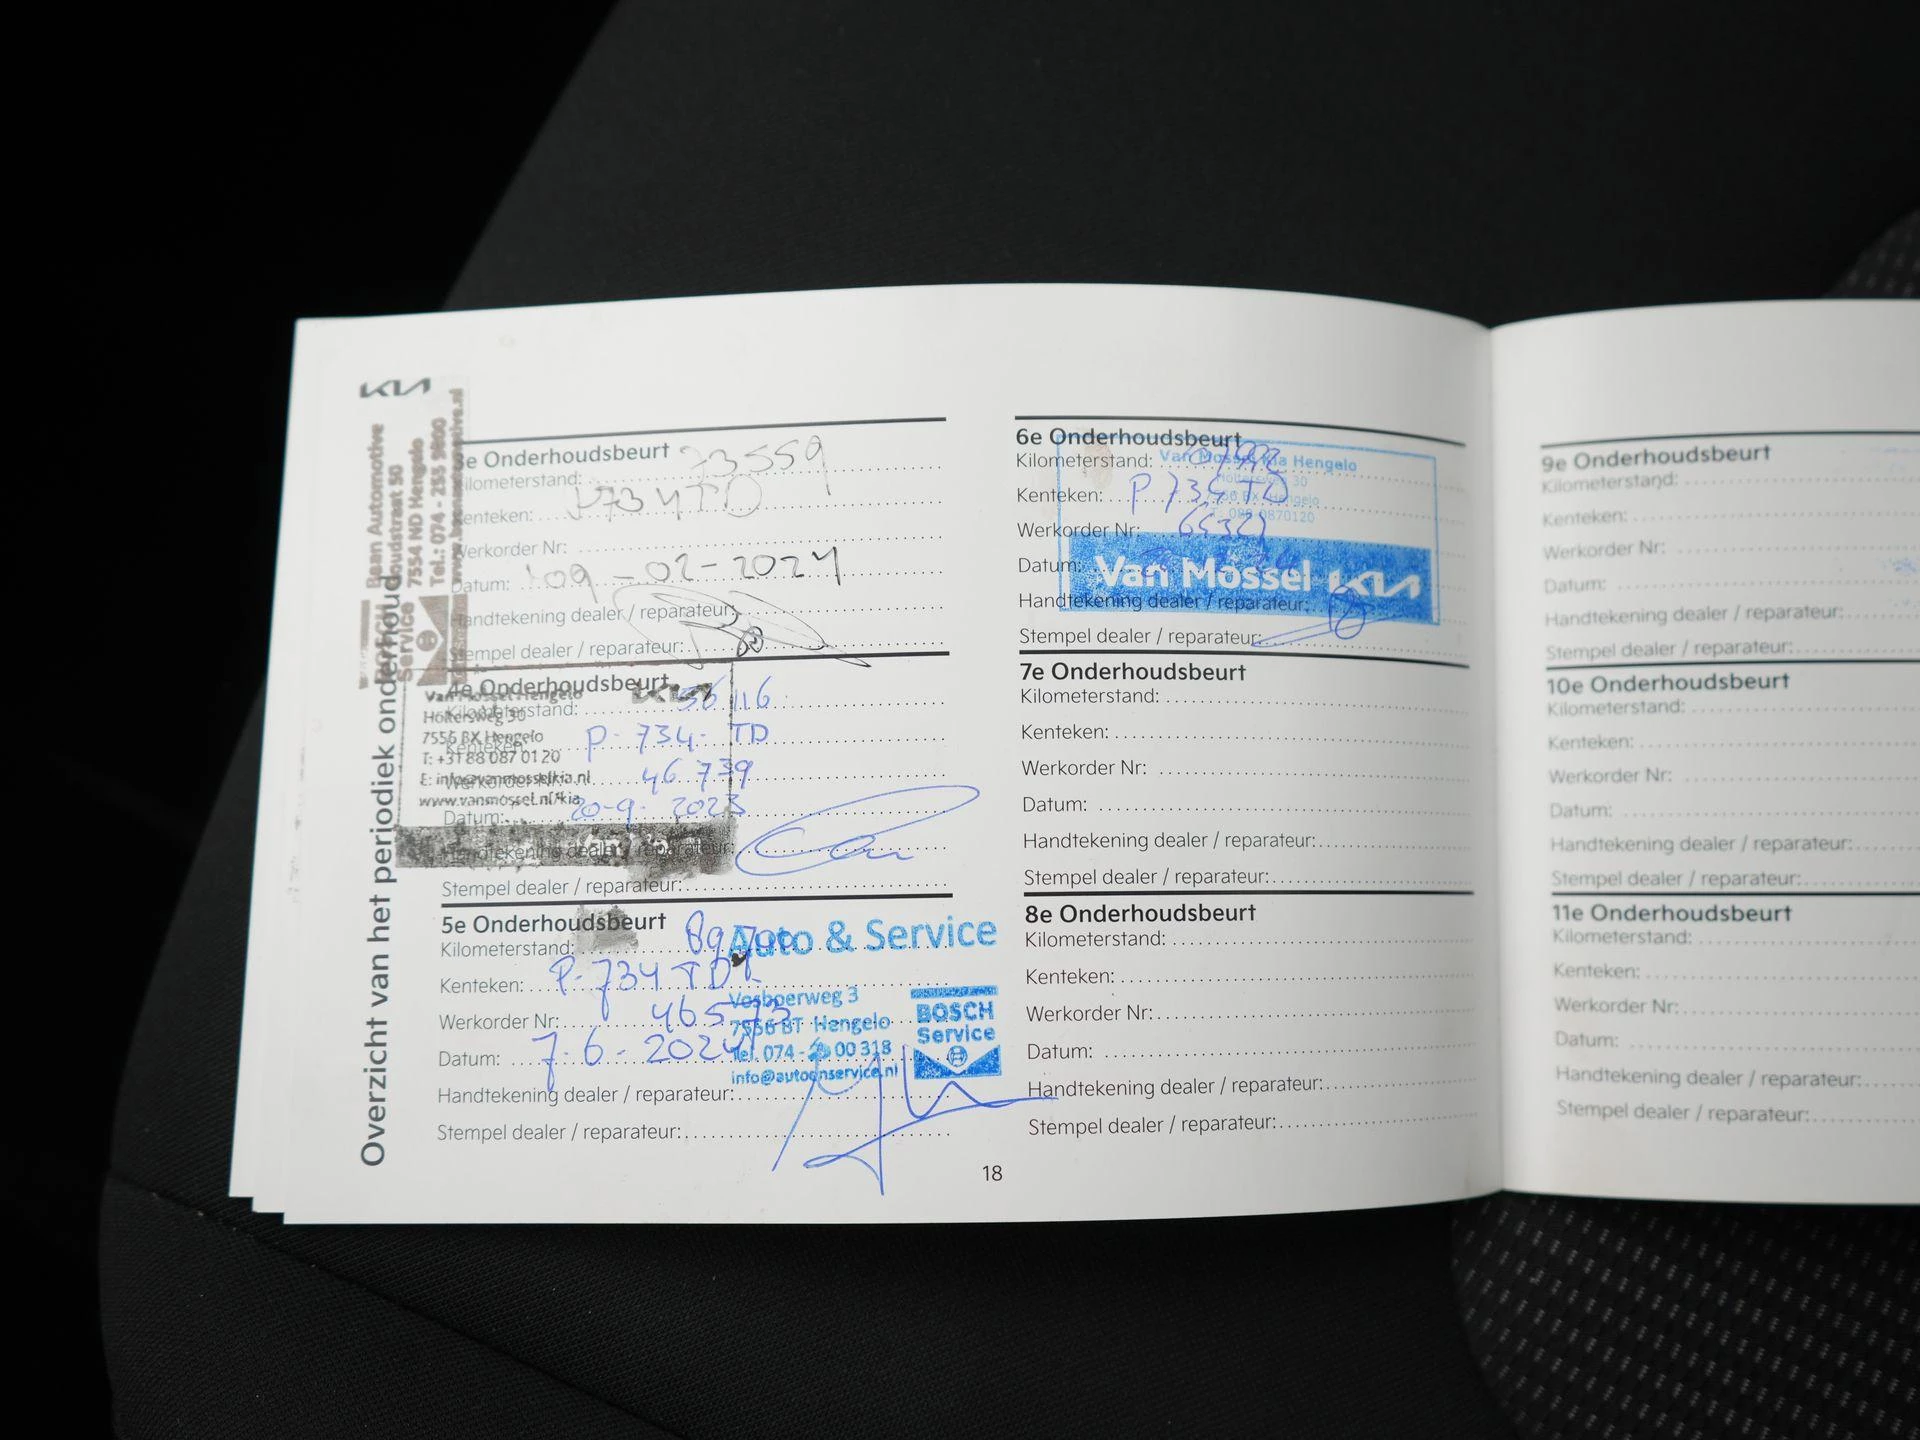 KIA
Overzicht van het periodiek onderhoud
Baan Automotive
Woudstraat 50
7554 ND Hengelo
Tel.: 074 - 255 9800
BOSCH
Service
3e Onderhoudsbeurt
Kilometerstand: 73559
Kenteken: P734TD
Werkorder Nr:
Datum: 09-02-2024
Handtekening dealer / reparateur:
Stempel dealer / reparateur:
4e Onderhoudsbeurt
Kilometerstand: 56116
Kenteken: P-734-TD
Werkorder Nr: 46739
Datum: 20-9-2023
Handtekening dealer / reparateur:
Stempel dealer / reparateur:
KIA
Van Mossel Hengelo
Holtersweg 30
7556 BX Hengelo
T: +31 88 087 01 20
E: info@vanmosselkia.nl
www.vanmossel.nl/kia
5e Onderhoudsbeurt
Kilometerstand:
Kenteken: P-734TD
Werkorder Nr: 46573
Datum: 7-6-2024
Handtekening dealer / reparateur:
Stempel dealer / reparateur:
Auto & Service
Vosboerweg 3
7556 BT Hengelo
Tel. 074 - 00 318
info@autoenservice.nl
BOSCH
Service
6e Onderhoudsbeurt
Kilometerstand:
Kenteken: P734TD
Werkorder Nr:
Datum:
Handtekening dealer / reparateur:
Stempel dealer / reparateur:
Van Mossel Kia Hengelo
Holtersweg 30
7556 BX Hengelo
T: 088-0870120
Van Mossel KIA
7e Onderhoudsbeurt
Kilometerstand:
Kenteken:
Werkorder Nr:
Datum:
Handtekening dealer / reparateur:
Stempel dealer / reparateur:
8e Onderhoudsbeurt
Kilometerstand:
Kenteken:
Werkorder Nr:
Datum:
Handtekening dealer / reparateur:
Stempel dealer / reparateur:
18
9e Onderhoudsbeurt
Kilometerstand:
Kenteken:
Werkorder Nr:
Datum:
Handtekening dealer / reparateur:
Stempel dealer / reparateur:
10e Onderhoudsbeurt
Kilometerstand:
Kenteken:
Werkorder Nr:
Datum:
Handtekening dealer / reparateur:
Stempel dealer / reparateur:
11e Onderhoudsbeurt
Kilometerstand:
Kenteken:
Werkorder Nr:
Datum:
Handtekening dealer / reparateur:
Stempel dealer / reparateur: